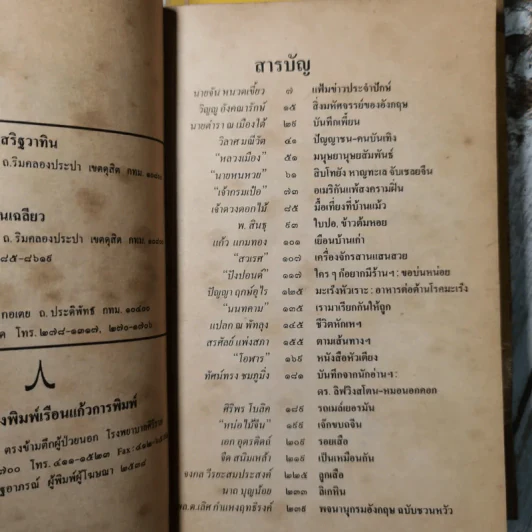 สริฐวาทิน
ถ.ริมคลองประปา เขตดุสิต กทม. ๑๐๘๐๐
นเฉลียว
ถ.ริมคลองประปา เขตดุสิต กทม. ๑๐๘๐๐
๘๕-๘๖๑๙
กอเตย ถ.ประดิพัทธ กทม. ๑๐๔๐๐
โทร. ๒๗๘-๑๓๑๗, ๒๗๐-๑๗๐๖
งพิมพ์เรือนแก้วการพิมพ์
ตรงข้ามตึกผู้ป่วยนอก โรงพยาบาลศิริราช
๗๐๐ โทร. ๔๑๑-๑๕๒๓
ฐอาภรณ์ ผู้พิมพ์ผู้โฆษณา ๒๕๓๘
สารบัญ
นายจัน หนวดเขี้ยว ๗ แฟ้มข่าวประจำปักษ์
วิญญู อังคณารักษ์ ๑๕ สิ่งมหัศจรรย์ของอังกฤษ
นายตำรา ณ เมืองใต้ ๒๙ บันทึกเพี้ยน
วิลาศ มณีวัต ๔๑ ปัญญาชน-คนบันเทิง
"หลวงเมือง" ๕๑ มนุษยานุษยสัมพันธ์
"นายหนหวย" ๖๑ สิบโทยัง หาญทะเล จับเชลยจีน
"เจ้ากรมเป๋อ" ๗๓ อเมริกันแพ้สงครามฝิ่น
เจ้าดวงดอกไม้ ๘๕ มื้อเที่ยงที่บ้านแม้ว
พ. สินธุ ๙๓ ใบปอ. ข้าวต้มหอย
แก้ว แกมทอง ๑๐๑ เยือนบ้านเก่า
"สวเรศ" ๑๐๗ เครื่องจักรสานแสนสวย
"ปังปอนด์" ๑๑๗ ใคร ๆ ก็อยากมีร้านฯ : ขอบ่นหน่อย
ปัญญา ฤกษ์อุไร ๑๒๕ มะเร็งหัวเราะ : อาหารต่อต้านโรคมะเร็ง
"นนทตาม" ๑๓๕ เรามาเรียกกันให้ถูก
แปลก ณ พัทลุง ๑๔๕ ชีวิตหักเหฯ
สรศัลย์ แพ่งสภา ๑๕๕ ตามเส้นทางฯ
"โอฬาร" ๑๖๙ หนังสือหัวเตียง
ทัศน์ทรง ชมภูมิ่ง ๑๘๑ บันทึกจากนักอ่านฯ :
ดร. ลิฟวิงสโตน-หมอนอกคอก
ศิริพร โบสิค ๑๘๙ รถเมล์เยอรมัน
"หน่อไม้จีน" ๑๙๙ เจ๊กขบถจีน
เอก อุตรดิตถ์ ๒๐๙ รอยเสือ
จืด สนิมเหล้า ๒๑๙ เป็นเหมือนกัน
จงกล วีรยะสมประสงค์ ๒๒๕ ลูกเสือ
นาถ บุญน้อย ๒๓๓ ลิเกหิน
พล.ต.เลิศ กำแหงฤทธิรงค์ ๒๓๙ พจนานุกรมอังกฤษ ฉบับชวนหวัว